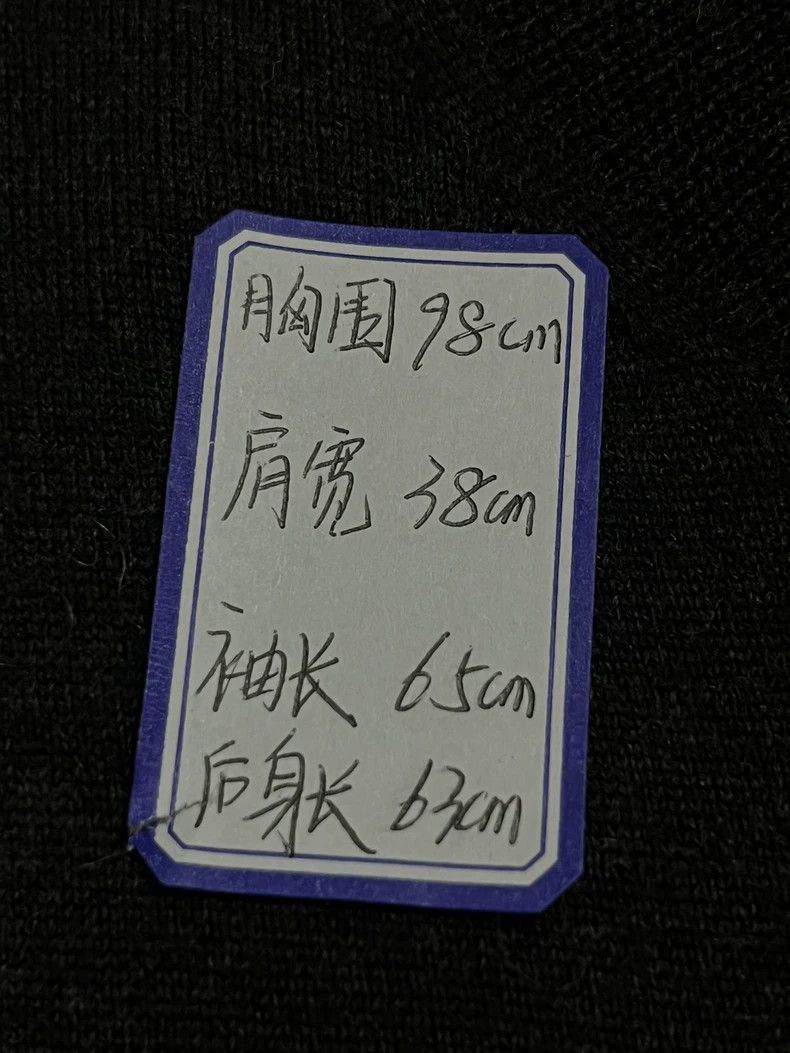 胸围 98cm
肩宽 38cm
袖长 65cm
后身长 63cm